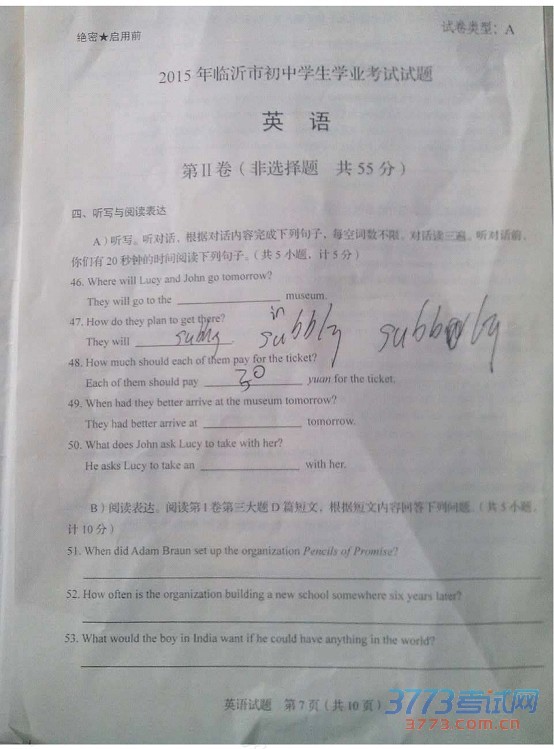 绝密★启用前
试卷类型：A
2015年临沂市初中学生学业考试试题
英 语
第Ⅱ卷（非选择题 共55分）
四、听写与阅读表达
A）听写。听对话，根据对话内容完成下列句子，每空词数不限。对话读三遍。听对话前，
你们有20秒钟的时间阅读下列句子。（共5小题，计5分）
46. Where will Lucy and John go tomorrow?
They will go to the ____________ museum.
47. How do they plan to get there?
They will ____________.
48. How much should each of them pay for the ticket?
Each of them should pay 30 yuan for the ticket.
49. When had they better arrive at the museum tomorrow?
They had better arrive at ____________ tomorrow.
50. What does John ask Lucy to take with her?
He asks Lucy to take an ____________ with her.
B）阅读表达。阅读第Ⅰ卷第三大题D篇短文，根据短文内容回答下列问题。（共5小题，
计10分）
51. When did Adam Braun set up the organization Pencils of Promise?
52. How often is the organization building a new school somewhere six years later?
53. What would the boy in India want if he could have anything in the world?
英语试题 第7页（共10页）
3773考试网
3773.com.cn